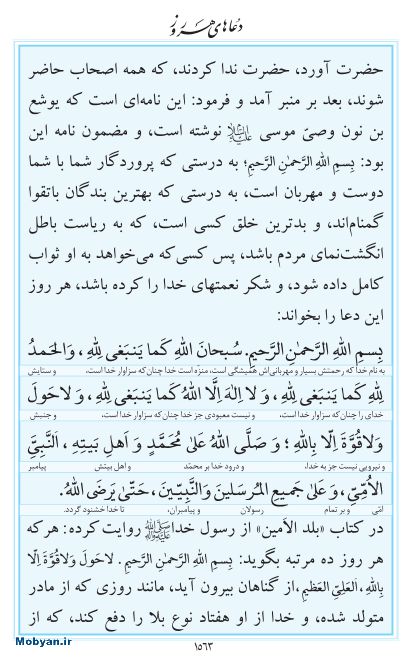 دعاهای هر روز
حضرت آورد، حضرت ندا کردند، که همه اصحاب حاضر
شوند، بعد بر منبر آمد و فرمود: این نامه‌ای است که یوشع
بن نون وصیّ موسی علیه‌السلام نوشته است، و مضمون نامه این
بود: بِسمِ اللهِ الرَّحمٰنِ الرَّحیمِ؛ به درستی که پروردگار شما با شما
دوست و مهربان است، به درستی که بهترین بندگان باتقوا
گمنام‌اند، و بدترین خلق کسی است، که به ریاست باطل
انگشت‌نمای مردم باشد، پس کسی‌که می‌خواهد به او ثواب
کامل داده شود، و شکر نعمتهای خدا را کرده باشد، هر روز
این دعا را بخواند:
بِسمِ اللهِ الرَّحمٰنِ الرَّحیمِ. سُبحانَ اللهِ کَما یَنبَغی لِلّٰهِ ، وَالحَمدُ
به نام خدا که رحمتش بسیار و مهربانی‌اش همیشگی است، منزّه است خدا چنان‌که سزاوار خدا است، و ستایش
لِلّٰهِ کَما یَنبَغی لِلّٰهِ ، وَ لا اِلٰهَ اِلَّا اللهُ کَما یَنبَغی لِلّٰهِ ، وَ لا حَولَ
خدای را چنان‌که سزاوار خدا است، و نیست معبودی جز خدا چنان‌که سزاوار خدا است، و جنبش
وَلا قُوَّةَ اِلّا بِاللهِ ؛ وَ صَلَّی اللهُ عَلیٰ مُحَمَّدٍ وَ اَهلِ بَیتِهِ ، اَلنَّبِیِّ
و نیرویی نیست جز به خدا، و درود خدا بر محمّد و اهل بیتش پیامبر
الاُمِّیِّ، وَ عَلیٰ جَمیعِ المُرسَلینَ وَالنَّبِیّینَ، حَتّیٰ یَرضَی اللهُ.
امّی و بر تمام رسولان و پیامبران، تا خدا خشنود گردد.
در کتاب «بلد الأمین» از رسول خدا ﷺ روایت کرده: هر که
هر روز ده مرتبه بگوید: بِسمِ اللهِ الرَّحمٰنِ الرَّحیمِ. لاحَولَ وَلاقُوَّةَ اِلّا
بِاللهِ، العَلِیِّ العَظیمِ، از گناهان بیرون آید، مانند روزی که از مادر
متولد شده، و خدا از او هفتاد نوع بلا را دفع کند، که از
Mobyan.ir
۱۵۶۳